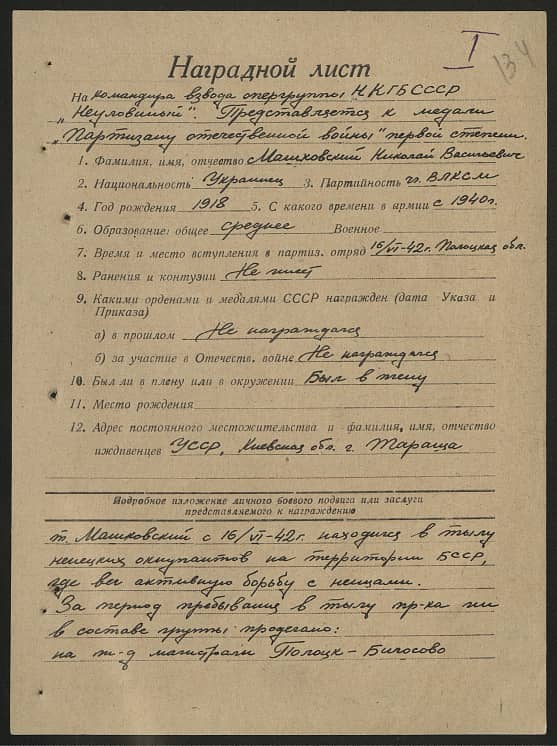 I
134
Наградной лист
На командира взвода опергруппы НКГБ СССР
„Неуловимый". Представляется к медали
„Партизану отечественной войны" первой степени.
1. Фамилия, имя, отчество Машковский Николай Васильевич
2. Национальность Украинец 3. Партийность чл. ВЛКСМ
4. Год рождения 1918 5. С какого времени в армии с 1940г.
6. Образование: общее среднее Военное
7. Время и место вступления в партиз. отряд 16/VI-42г. Полоцкая обл.
8. Ранения и контузии Не имеет
9. Какими орденами и медалями СССР награжден (дата Указа и
Приказа)
а) в прошлом Не награждался
б) за участие в Отечеств. войне Не награждался
10. Был ли в плену или в окружении Был в плену
11. Место рождения
12. Адрес постоянного местожительства и фамилия, имя, отчество
иждивенцев УССР, Киевская обл. г. Тараща
Подробное изложение личного боевого подвига или заслуги
представляемого к награждению
т. Машковский с 16/VI-42г. находился в тылу
немецких оккупантов на территории БССР,
где вел активную борьбу с немцами.
За период пребывания в тылу пр-ка им
в составе группы проделано:
на ж-д магистрали Полоцк – Бигосово